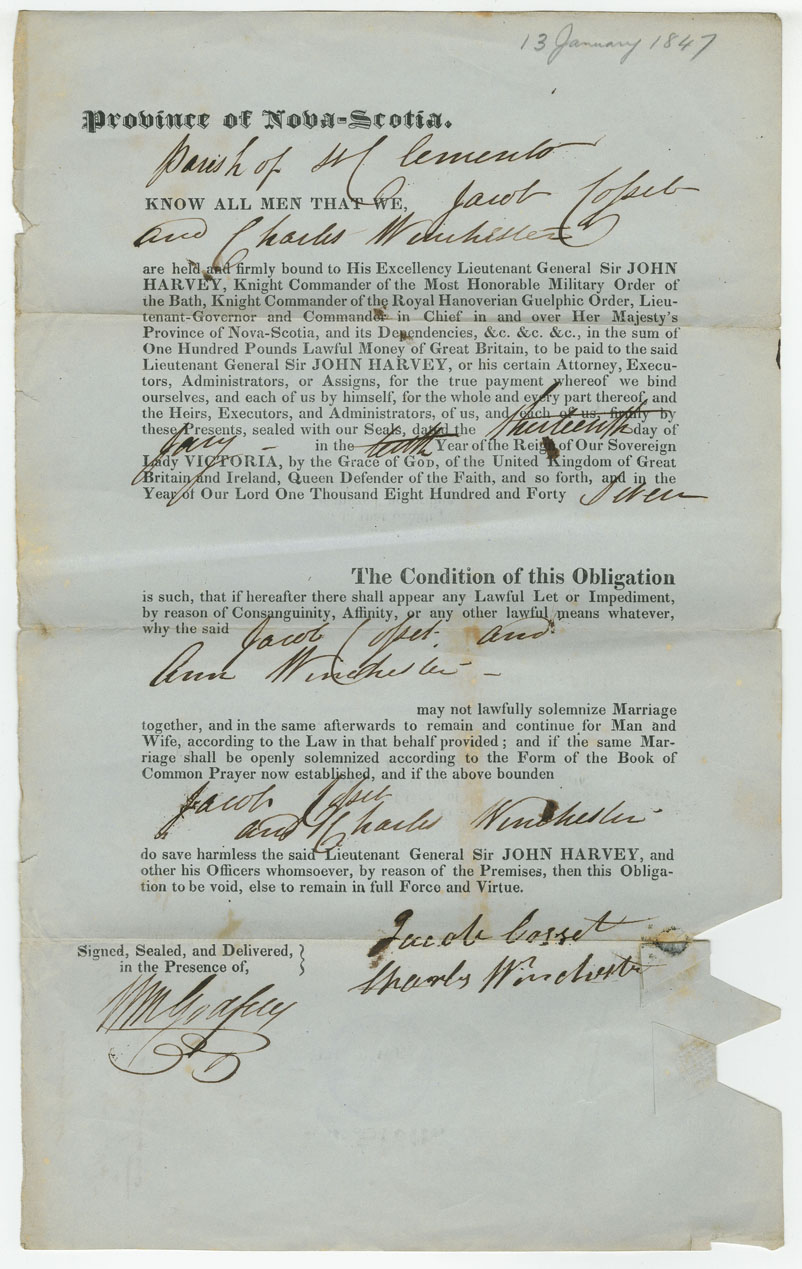 13 January 1847
Province of Nova-Scotia.
Parish of St Clements
KNOW ALL MEN THAT WE, Jacob Cosset
and Charles Winchester
are held and firmly bound to His Excellency Lieutenant General Sir JOHN
HARVEY, Knight Commander of the Most Honorable Military Order of
the Bath, Knight Commander of the Royal Hanoverian Guelphic Order, Lieu-
tenant-Governor and Commander in Chief in and over Her Majesty's
Province of Nova-Scotia, and its Dependencies, &c. &c. &c., in the sum of
One Hundred Pounds Lawful Money of Great Britain, to be paid to the said
Lieutenant General Sir JOHN HARVEY, or his certain Attorney, Execu-
tors, Administrators, or Assigns, for the true payment whereof we bind
ourselves, and each of us by himself, for the whole and every part thereof, and
the Heirs, Executors, and Administrators, of us, and each of us, firmly by
these Presents, sealed with our Seals, dated the thirteenth day of
Jany - in the tenth Year of the Reign of Our Sovereign
Lady VICTORIA, by the Grace of GOD, of the United Kingdom of Great
Britain and Ireland, Queen Defender of the Faith, and so forth, and in the
Year of Our Lord One Thousand Eight Hundred and Forty Seven
The Condition of this Obligation
is such, that if hereafter there shall appear any Lawful Let or Impediment,
by reason of Consanguinity, Affinity, or any other lawful means whatever,
why the said Jacob Cosset and
Ann Winchester -
may not lawfully solemnize Marriage
together, and in the same afterwards to remain and continue for Man and
Wife, according to the Law in that behalf provided; and if the same Mar-
riage shall be openly solemnized according to the Form of the Book of
Common Prayer now established, and if the above bounden
Jacob Cosset
and Charles Winchester
do save harmless the said Lieutenant General Sir JOHN HARVEY, and
other his Officers whomsoever, by reason of the Premises, then this Obliga-
tion to be void, else to remain in full Force and Virtue.
Jacob Cosset
Signed, Sealed, and Delivered,
in the Presence of,
Charls Winchester
Wm Godfrey